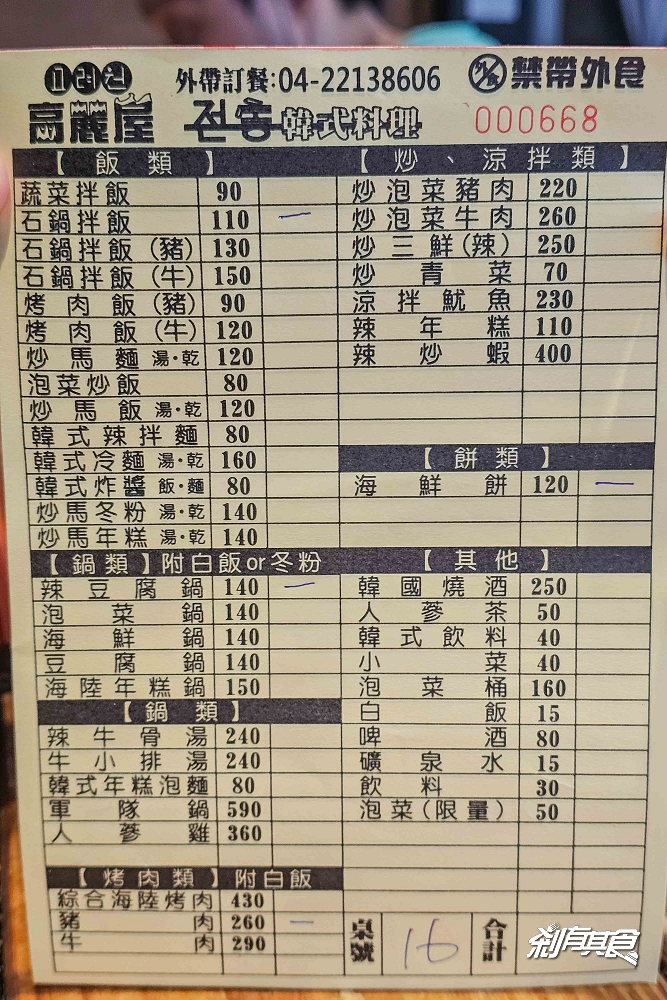 고려원 外帶訂餐:04-22138606 外食 禁帶外食
高麗屋 전통韓式料理 000668
【飯類】
蔬菜拌飯 90
石鍋拌飯 110 一
石鍋拌飯(豬) 130
石鍋拌飯(牛) 150
烤肉飯(豬) 90
烤肉飯(牛) 120
炒馬麵 湯·乾 120
泡菜炒飯 80
炒馬飯 湯·乾 120
韓式辣拌麵 80
韓式冷麵 湯·乾 160
韓式炸醬 飯·麵 80
炒馬冬粉 湯·乾 140
炒馬年糕 湯·乾 140
【鍋類】附白飯or冬粉
辣豆腐鍋 140 一
泡菜鍋 140
海鮮鍋 140
豆腐鍋 140
海陸年糕鍋 150
【鍋類】
辣牛骨湯 240
牛小排湯 240
韓式年糕泡麵 80
軍隊鍋 590
人蔘雞 360
【烤肉類】附白飯
綜合海陸烤肉 430
豬肉 260 一
牛肉 290
【炒、涼拌類】
炒泡菜豬肉 220
炒泡菜牛肉 260
炒三鮮(辣) 250
炒青菜 70
涼拌魷魚 230
辣年糕 110
辣炒蝦 400
【餅類】
海鮮餅 120 一
【其他】
韓國燒酒 250
人蔘茶 50
韓式飲料 40
小菜 40
泡菜桶 160
白飯 15
啤酒 80
礦泉水 15
飲料 30
泡菜(限量) 50
桌號 16 合計
剎有其食